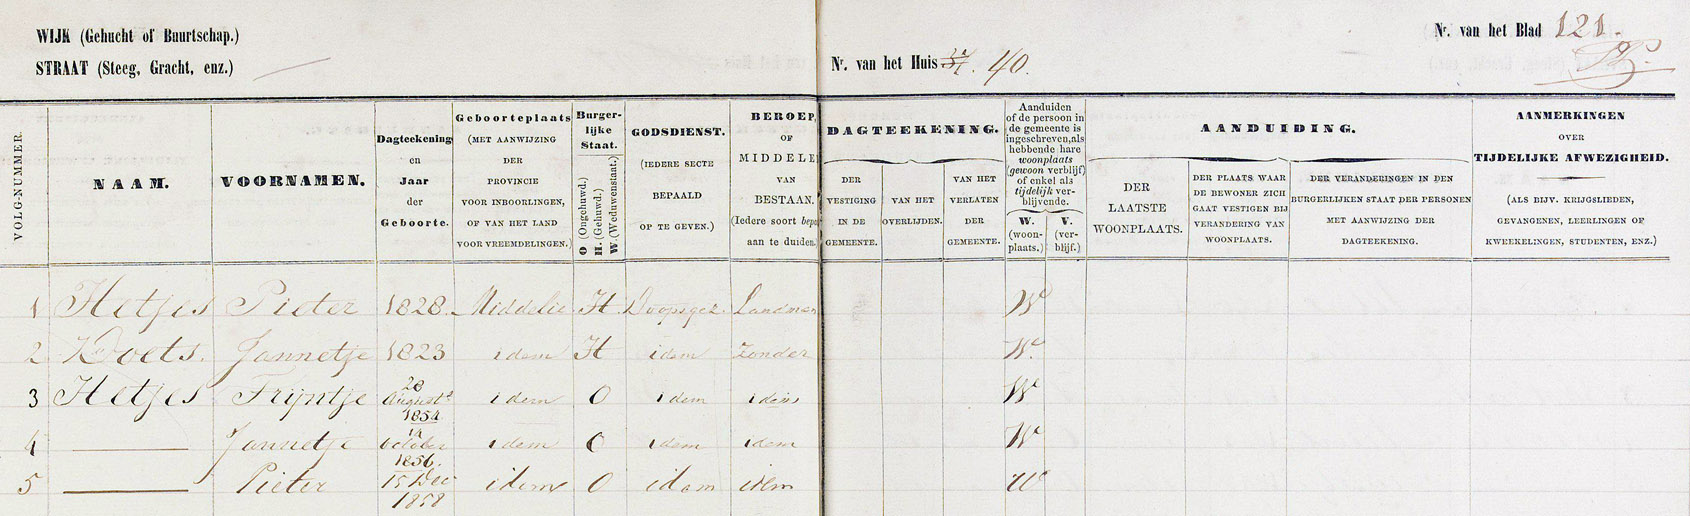 WIJK (Gehucht of Buurtschap.)
STRAAT (Steeg, Gracht, enz.)
Nr. van het Huis 40.
Nr. van het Blad 121.
VOLG-NUMMER.
NAAM.
VOORNAMEN.
Dagteekening
en
Jaar
der
Geboorte.
Geboorteplaats
(MET AANWIJZING
DER
PROVINCIE
VOOR INBOORLINGEN,
OF VAN HET LAND
VOOR VREEMDELINGEN.)
Burger-
lijke
Staat.
O (Ongehuwd.)
H. (Gehuwd.)
W. (Weduwenstaat.)
GODSDIENST.
(IEDERE SECTE
BEPAALD
OP TE GEVEN.)
BEROEP,
OF
MIDDELE
VAN
BESTAAN.
(Iedere soort bepa
aan te duiden.
DAGTEEKENING.
DER
VESTIGING
IN DE
GEMEENTE.
VAN HET
OVERLIJDEN.
VAN HET
VERLATEN
DER
GEMEENTE.
Aanduiden
of de persoon in
de gemeente is
ingeschreven, als
hebbende hare
woonplaats
(gewoon verblijf)
of enkel als
tijdelijk ver-
blijvende.
W.
(woon-
plaats.)
V.
(ver-
blijf.)
AANDUIDING.
DER
LAATSTE
WOONPLAATS.
DER PLAATS WAAR
DE BEWONER ZICH
GAAT VESTIGEN BIJ
VERANDERING VAN
WOONPLAATS.
DER VERANDERINGEN IN DEN
BURGERLIJKEN STAAT DER PERSONEN
MET AANWIJZING DER
DAGTEEKENING.
AANMERKINGEN
OVER
TIJDELIJKE AFWEZIGHEID.
(ALS BIJV. KRIJGSLIEDEN,
GEVANGENEN, LEERLINGEN OF
KWEEKELINGEN, STUDENTEN, ENZ.)
1 Hetjes Pieter 1828. Middelie H Doopsgez. Landman We
2 Doets. Jannetje 1823 idem H idem zonder We
3 Hetjes Trijntje 28 August 1854 idem O idem idem We
4 Jannetje 14 october 1856. idem O idem idem We
5 Pieter 15 Dec 1858 idem O idem idem We